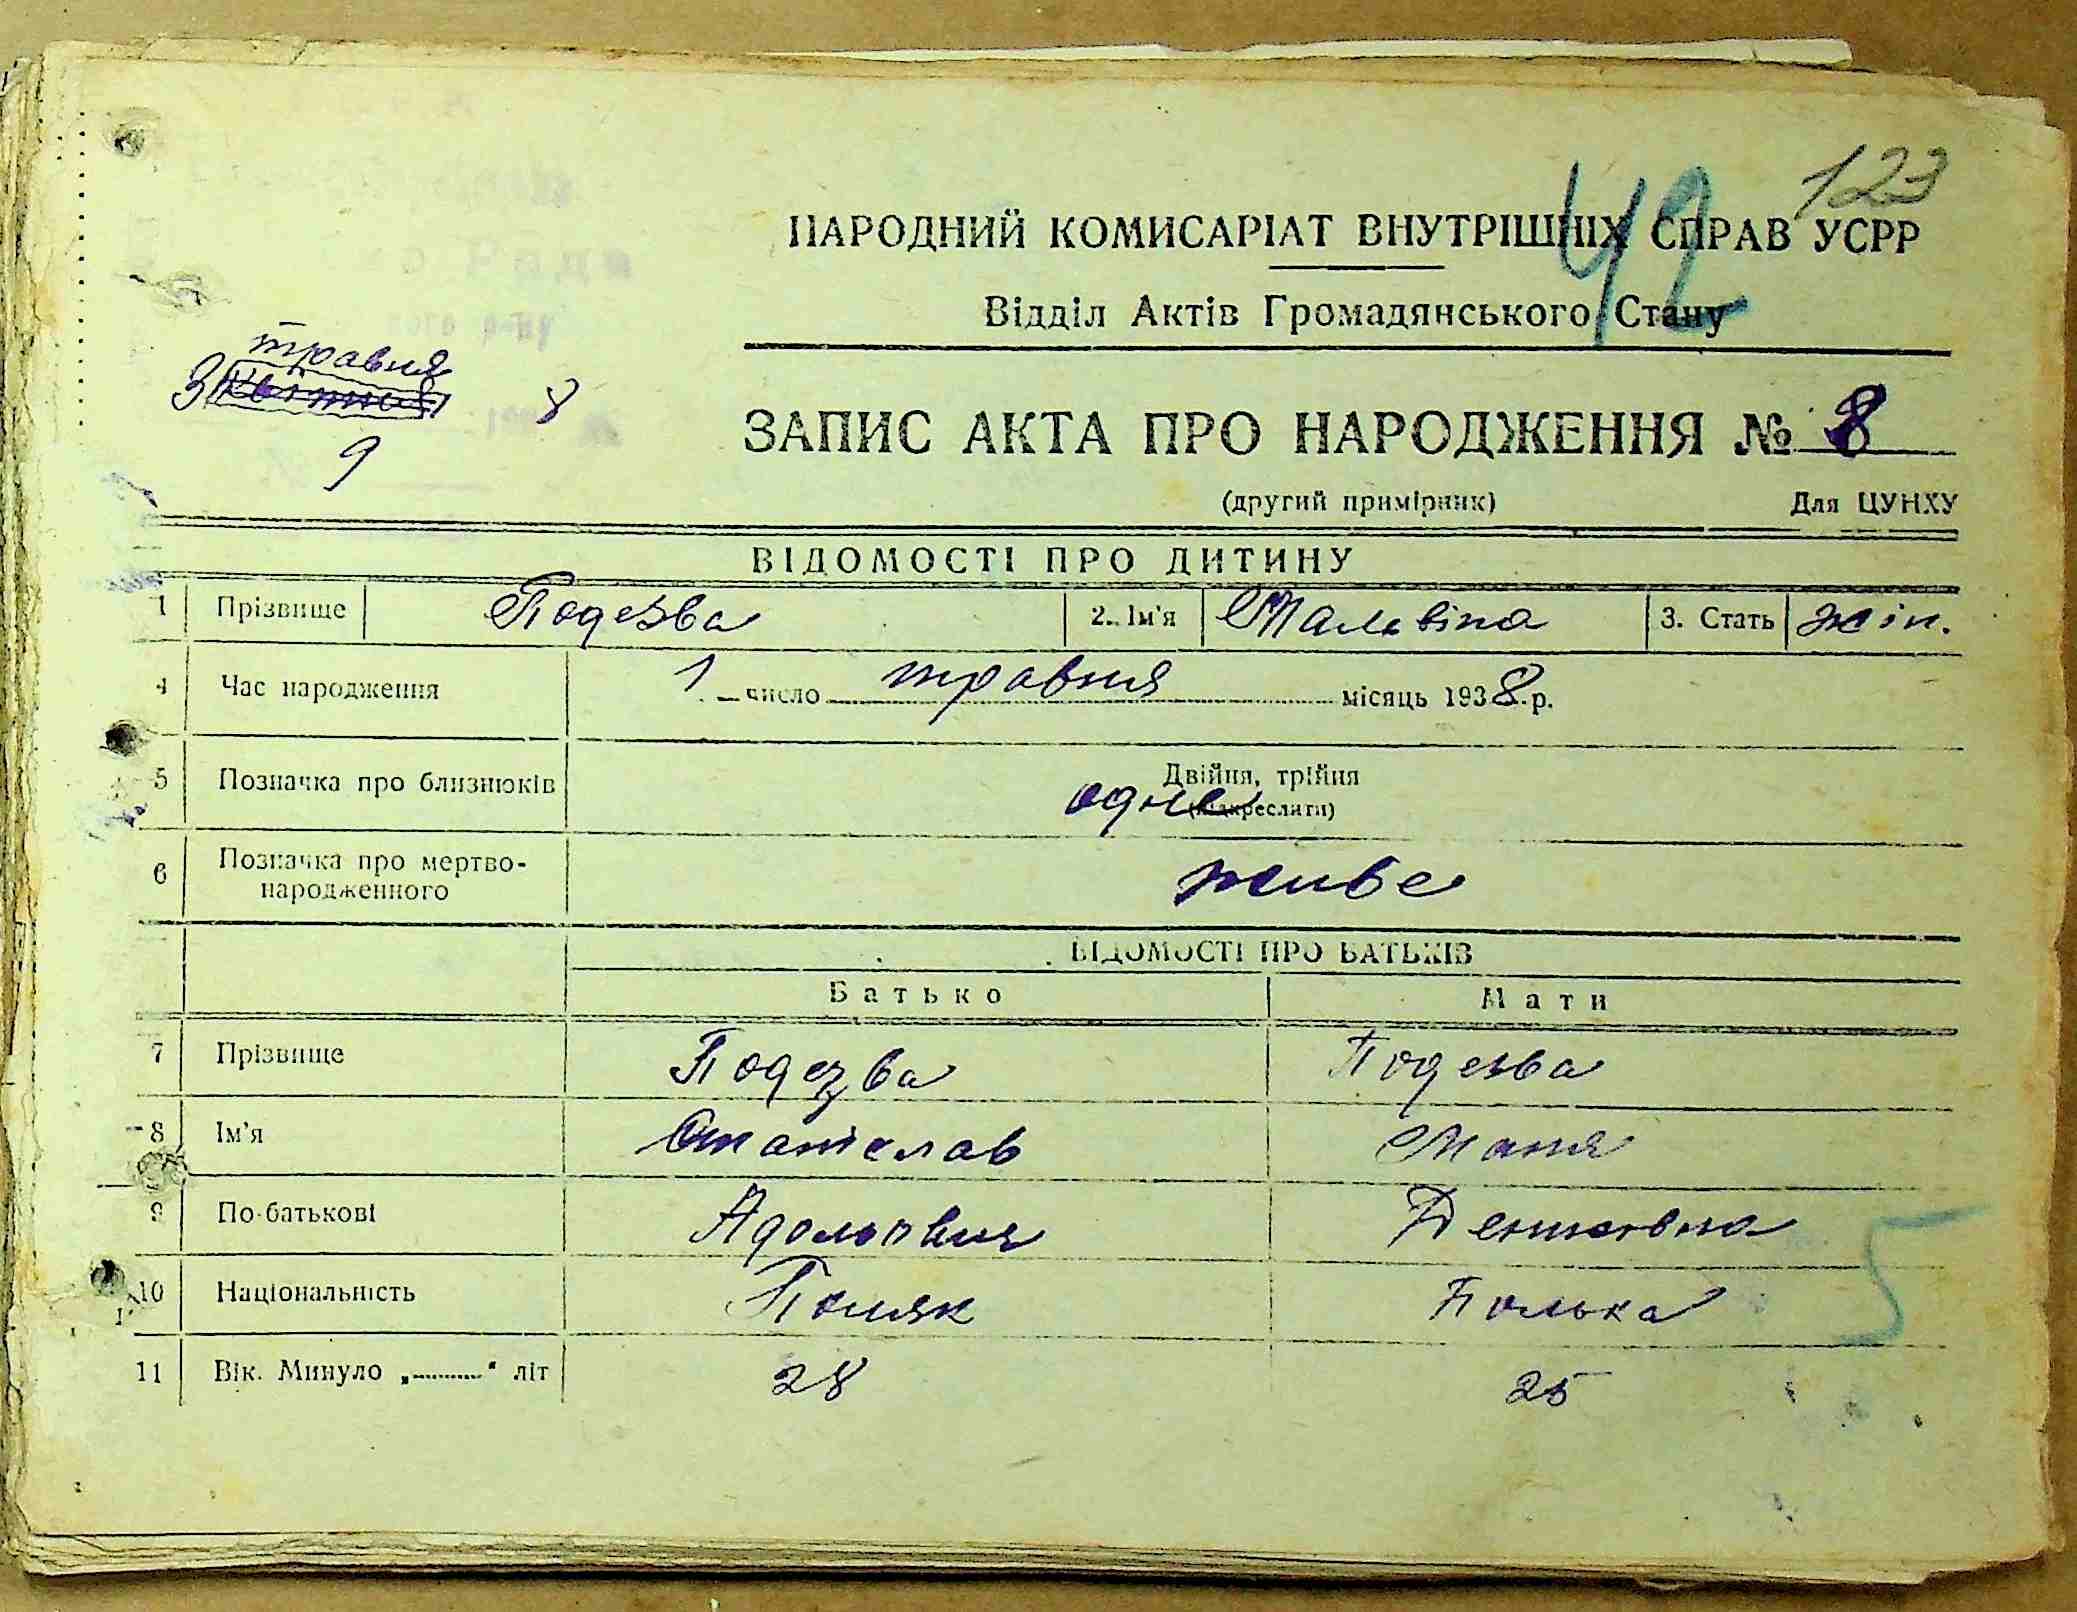 123
42
НАРОДНИЙ КОМИСАРІАТ ВНУТРІШНІХ СПРАВ УСРР
Відділ Актів Громадянського Стану
травня
3 квітня 8
9
ЗАПИС АКТА ПРО НАРОДЖЕННЯ № 8
(другий примірник) Для ЦУНХУ
ВІДОМОСТІ ПРО ДИТИНУ
1 Прізвище Подезва 2. Ім'я Мальвіна 3. Стать жін.
4 Час народження 1 число травня місяць 1938 р.
5 Позначка про близнюків Двійня, трійня
одне (підкреслити)
6 Позначка про мертво-
народженного живе
ВІДОМОСТІ ПРО БАТЬКІВ
Батько Мати
7 Прізвище Подезва Подезва
8 Ім'я Станіслав Маня
9 По-батькові Адольпвич Денисовна
10 Національність Поляк Полька
5
11 Вік. Минуло „ “ літ 28 25